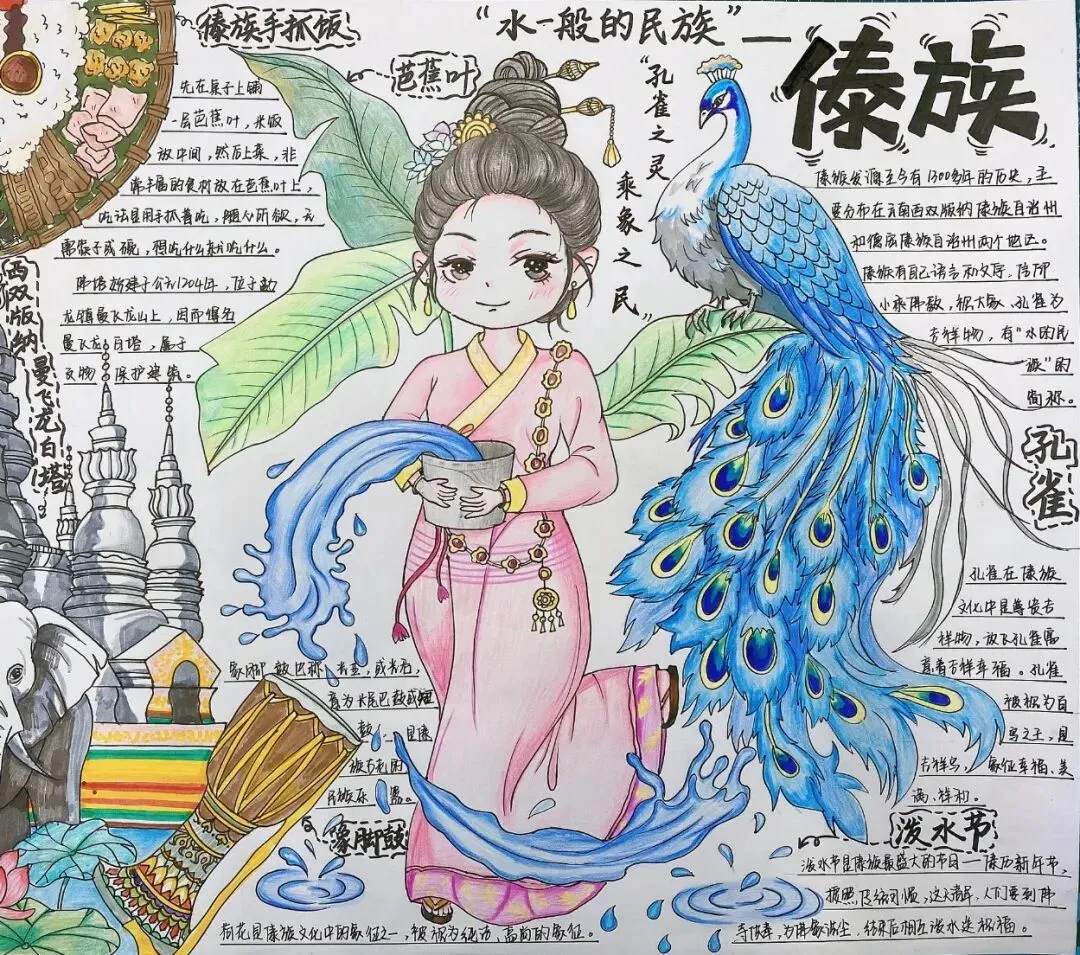 “水一般的民族”—
傣族
傣族手抓饭
先在桌子上铺
一层芭蕉叶，米饭
放中间，然后上菜，非
常丰富的食材放在芭蕉叶上，
吃法是用手抓着吃，随心所欲，无
需筷子或碗，想吃什么就吃什么。
芭蕉叶
“孔雀之灵
乘象之民”
傣族发源至今有1300多年的历史，主
要分布在云南西双版纳傣族自治州
和德宏傣族自治州两个地区。
傣族有自己语言和文字，信仰
小乘佛教，视大象、孔雀为
吉祥物，有“水的民
族”的
简称。
西双版纳
曼飞龙白塔
佛塔始建于公元1204年，位于勐
龙镇曼飞龙山上，因而得名
曼飞龙白塔，属于
文物保护建筑。
孔雀
孔雀在傣族
文化中是善良吉
祥物，放飞孔雀寓
意着吉祥幸福。孔雀
被视为百
鸟之王，是
吉祥鸟，象征幸福、美
满、祥和。
象脚鼓
象脚鼓
意为长尾巴鼓或
鼓，是傣
族古老的
民族乐器。
泼水节
泼水节是傣族最盛大的节日——傣历新年节，
按照传统习惯，这天清早，人们要到佛
寺，为佛像洗尘，结束后相互泼水送祝福。
荷花是傣族文化中的象征之一，被视为纯洁、高尚的象征。